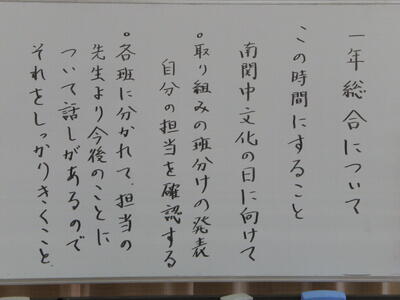 一年総合について
この時間にすること
南関中文化の日に向けて
。取り組みの班分けの発表
自分の担当を確認する
。各班に分かれて、担当の
先生より今後のことに
ついて話しがあるので
それをしっかりきくこと。